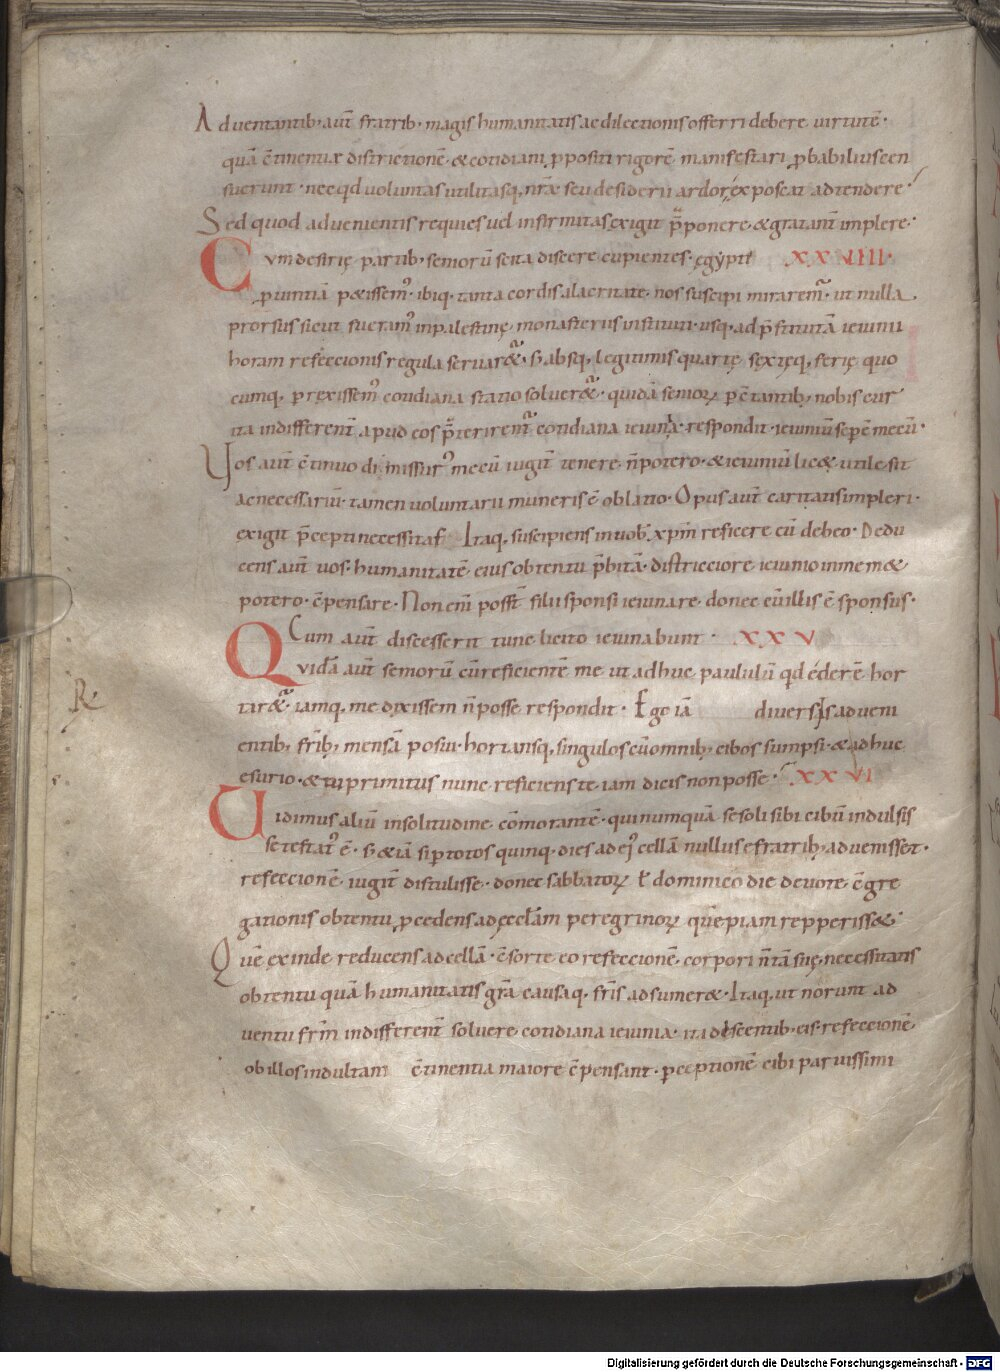 Aduentantib; aut̄ fratrib; magis humanitatis ac dilectionis offerri debere uirtutē·
quā c̄tinentiæ districtionē & cotidiani ꝓpositi rigorē manifestari ꝓbabilius cen
suerunt· nec qd uoluntas utilitasq; nr̄æ seu desiderii ardor exposcat adtendere
Sed quod aduenientis requies uel infirmitas exigit p̄ponere & gratanter implere·
Cvm de siriȩ partib; seniorū scita discere cupientes ȩgypti XXVIIII·
ꝓuintiā p&issem᷒ ibiq; tanta cordis alacritate nos suscipi mirarem᷒ ut nulla
prorsus sicut fueram᷒ in palestinȩ monasteriis instituti usq; ad p̄stitutā ieiunii
horam refeccionis regula seruar&· s; absq; legitimis quartȩ sextȩq; feriȩ quo
cumq; prexissem᷒ cotidiana statio soluer&· quidā senioꝝ pc̄tantib; nobis cur
ita indifferent̄ apud eos p̄terirent̄ cotidiana ieiunia· respondit· ieiuniū sēpē mecū·
Vos aut̄ c̄tinuo dimissur᷒ mecū iugit̄ tenere n̄ potero· & ieiuniū lic& utile sit
ac necessariū· tamen uoluntarii muneris ē oblatio· Opus aut̄ caritatis impleri·
exigit p̄cepti necessitas· Itaq; suscipiens in uob; xp̄m reficere eū debeo· Dedu
cens aut̄ uos· humanitatē eius obtentu p̄bitā· districciore ieiunio in mem&
potero· c̄pensare· Non enī posst̄ filii sponsi ieiunare· donec cū illis ē sponsus·
Cum aut̄ discesserit tunc licito ieiunabunt· XXV
Qvidā aut̄ seniorū cū reficientē me ut adhuc paululū qd ederē hor
tar&· iamq; me dixissem n̄ posse respondit· Ego iā diuersis adueni
entib; frīb; mensā posui· hortansq; singulos cū omnib; cibos sumpsi· & adhuc
esurio· & tu primitus nunc reficiens te iam dicis non posse· XXVI
Uidimus aliū in solitudine cōmorantē· qui numquā se soli sibi cibū indulsis
se testat᷒ ē· s; &iā si ꝑ totos quinq; dies ad ei᷒ cellā nullus e fratrib; aduenisset·
refeccionē iugit̄ distulisse· donec sabbatoꝝ ł dominico die deuote c̄gre
gationis obtentu ꝓcedens ad ȩccl̄am peregrinoꝝ quēpiam repperiss&
Quē exinde reducens ad cellā· c̄sorte eo refeccionē corpori n̄ tā suȩ necessitatis
obtentu quā humanitatis gr̄a causaq; fr̄is adsumer&· Itaq; ut norunt ad
uentu fr̄m indifferent̄ soluere cotidiana ieiunia· ita discentib; eis refeccionē
ob illos indultam c̄tinentia maiore c̄pensant· ꝑceptionē cibi paruissimi
R̵